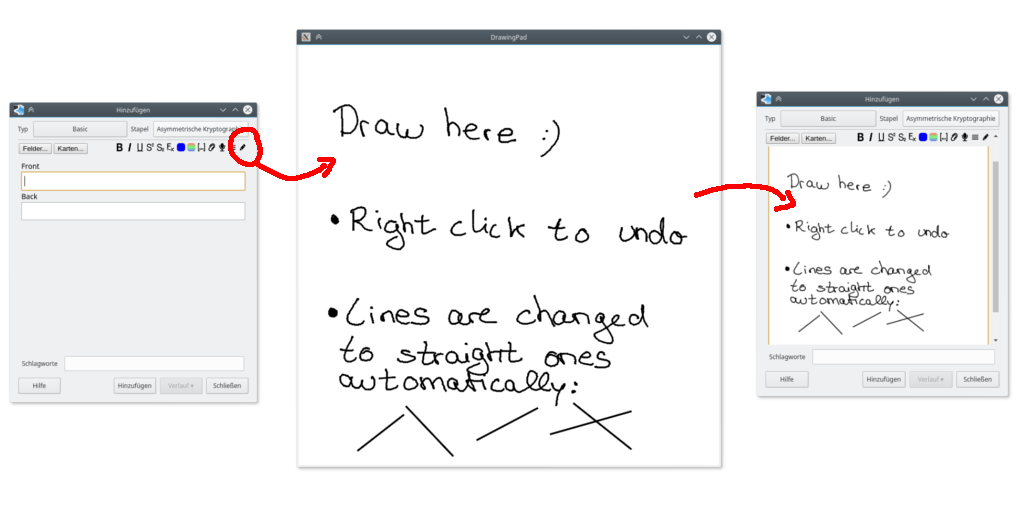 Hinzufügen
Typ Basic Stapel Asymmetrische Kryptographie
Felder... Karten... B I U S² S₂ Eₓ [...]
Front
Back
Schlagworte
Hilfe Hinzufügen Verlauf ▾ Schließen
DrawingPad
Draw here :)
• Right click to undo
• Lines are changed
to straight ones
automatically:
Hinzufügen
Typ Basic Stapel Asymmetrische Kryptographie
Felder... Karten... B I U S² S₂ Eₓ [...]
Draw here :)
• Right click to undo
• Lines are changed
to straight ones
automatically:
Schlagworte
Hilfe Hinzufügen Verlauf ▾ Schließen